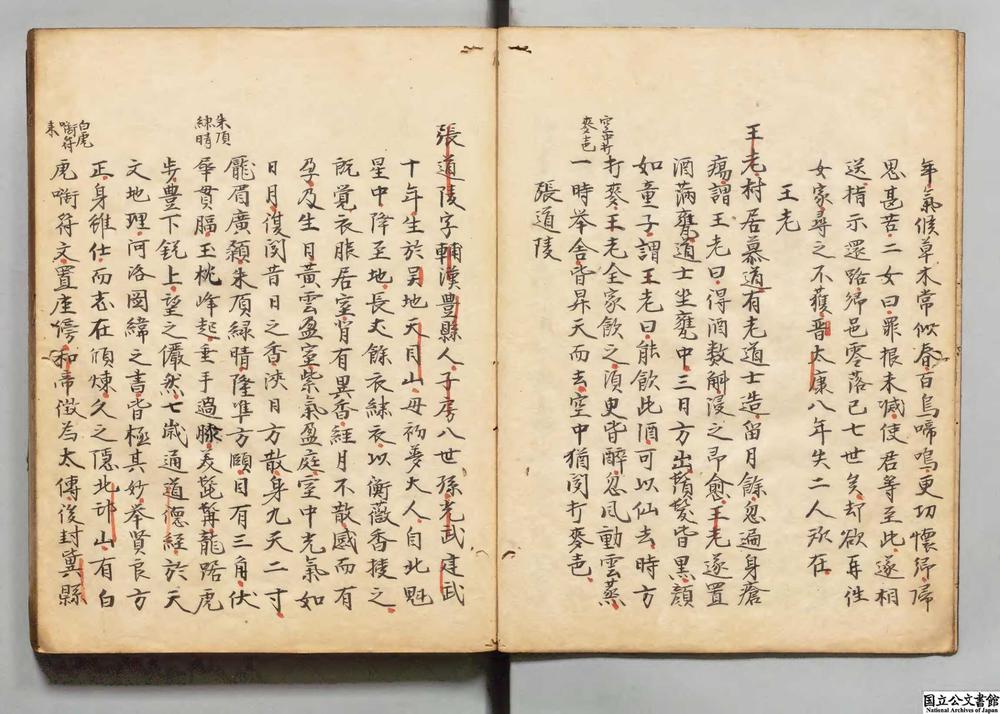 年氣候草木常似春百鳥啼鳴更切懷鄉帰
思甚苦二女曰罪根未滅使君等至此遂相
送指示還路鄉邑零落已七世矣却欲再往
女家尋之不獲晋太康八年失二人所在
王老
王老村居慕道有老道士造留月餘忽遍身瘡
瘍謂王老曰得酒数斛浸之即愈王老遂置
酒満甕道士坐甕中三日方出鬚髮皆黒顔
如童子謂王老曰能飲此酒可以仙去時方
打麥王老全家飲之須臾皆醉忽風動雲蒸
一時举舍皆昇天而去空中猶聞打麥聲
空中打
麥聲
張道陵
張道陵字輔漢豊縣人子房八世孫光武建武
十年生於吴地天目山母初夢大人自北魁
星中降至地長丈餘衣綉衣以衡薇香授之
既覚衣服居室皆有異香経月不散感而有
孕及生日黄雲盈室紫氣盈庭室中光氣如
日月復聞昔日之香浹日方散身九尺二寸
厖眉廣顙朱頂緑睛隆準方頤目有三角伏
犀貫脳玉枕峰起垂手過膝美髭髯龍踞虎
朱頂
緑睛
步豊下鋭上望之儼然七歳通道徳経於天
文地理河洛圖緯之書皆極其妙举賢良方
正身雖仕而志在修煉久之隠北邙山有白
虎啣符文置座傍和帝徴為太傅後封冀縣
白虎
啣符
来
国立公文書館
National Archives of Japan